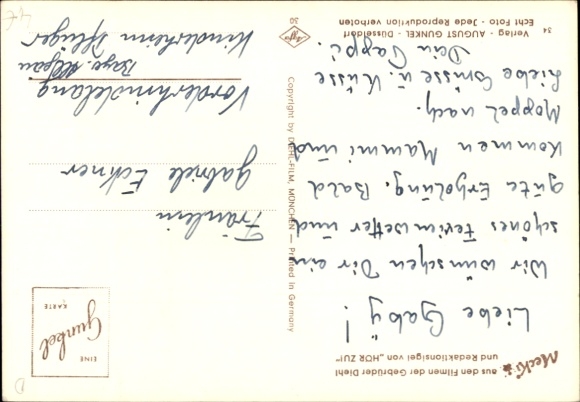 Mecki
aus den Filmen der Gebrüder Diehl
und Redaktionsigel von „HÖR ZU!"
Liebe Gaby!
Wir wünschen Dir ein
schönes Ferienwetter und
gute Erholung. Bald
kommen Mammi und
Moppel nach.
Liebe Grüsse u. Küsse
Dein Pappi.
34
Verlag - AUGUST GUNKEL - Düsseldorf
Echt Foto - Jede Reproduktion verboten
Copyright by DIEHL-FILM, MÜNCHEN — Printed in Germany
Agfa
30
EINE
Gunkel
KARTE
Fräulein
Gabriele Eckner
Vorderhindelang
Kinderheim Pflüger
D